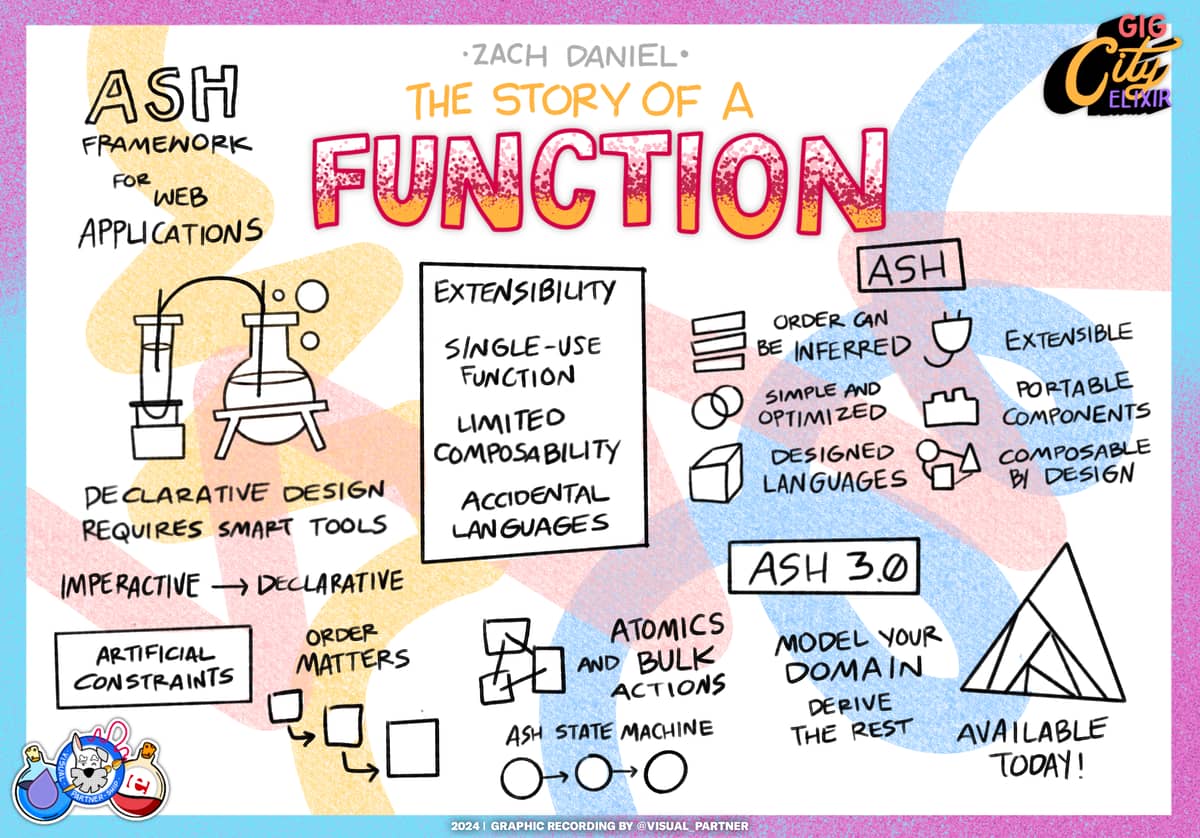 ·ZACH DANIEL·
THE STORY OF A
FUNCTION
GIG
City
ELIXIR
ASH
FRAMEWORK
FOR
WEB
APPLICATIONS
DECLARATIVE DESIGN
REQUIRES SMART TOOLS
IMPERACTIVE → DECLARATIVE
ARTIFICIAL
CONSTRAINTS
ORDER
MATTERS
EXTENSIBILITY
SINGLE-USE
FUNCTION
LIMITED
COMPOSABILITY
ACCIDENTAL
LANGUAGES
ASH
ORDER CAN
BE INFERRED
SIMPLE AND
OPTIMIZED
DESIGNED
LANGUAGES
EXTENSIBLE
PORTABLE
COMPONENTS
COMPOSABLE
BY DESIGN
ATOMICS
AND BULK
ACTIONS
ASH STATE MACHINE
ASH 3.0
MODEL YOUR
DOMAIN
DERIVE
THE REST
AVAILABLE
TODAY!
VISUAL
PARTNER
2024 | GRAPHIC RECORDING BY @VISUAL_PARTNER